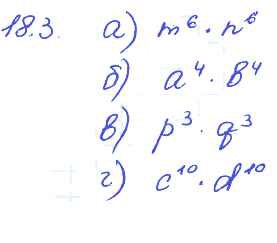 18.3. а) m⁶ · n⁶
б) a⁴ · b⁴
в) p³ · q³
г) c¹⁰ · d¹⁰